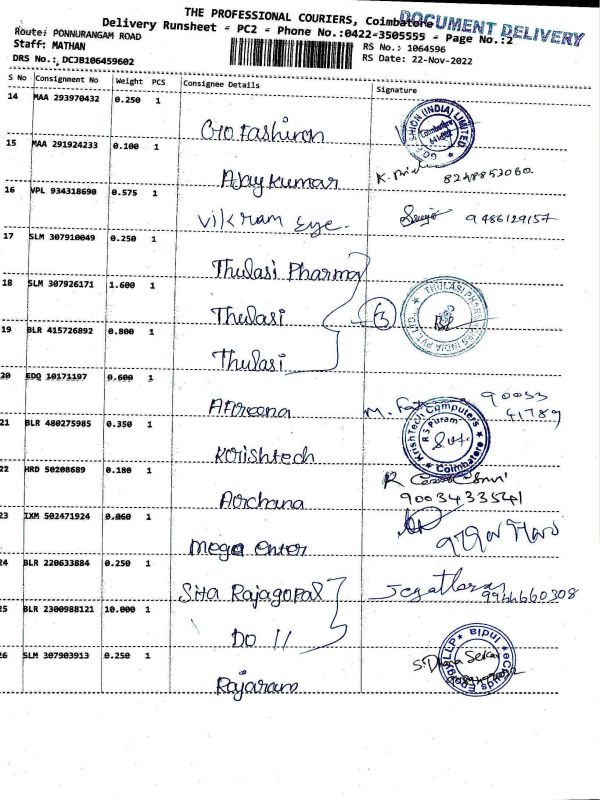 THE PROFESSIONAL COURIERS, Coimbatore
DOCUMENT DELIVERY
Delivery Runsheet - PC2 - Phone No.:0422-3505555 - Page No.:2
Route: PONNURANGAM ROAD
RS No.: 1064596
Staff: MATHAN
RS Date: 22-Nov-2022
DRS No.: DCJB106459602
S No Consignment No Weight PCS Consignee Details Signature
14 MAA 293970432 0.250 1
GO FASHION (INDIA) LIMITED
15 MAA 291924233 0.100 1
Ajay kumar
16 VPL 934318690 0.575 1
Vikram Eye. 9486129157
17 SLM 307910049 0.250 1
Thulasi Pharma
18 SLM 307926171 1.600 1
Thulasi 3
19 BLR 415726892 0.800 1
Thulasi
20 EDQ 10171197 0.600 1
90053
41789
21 BLR 480275985 0.350 1
Krishtech Computers R S Puram Coimbatore
Krishtech
22 HRD 50208689 0.180 1
Archana 9003433541
23 IXM 502471924 0.060 1
Mega enter
24 BLR 220633884 0.250 1
Sita Rajagopal 9944660308
25 BLR 2300988121 10.000 1
Do 11
26 SLM 307903913 0.250 1
Rajaram